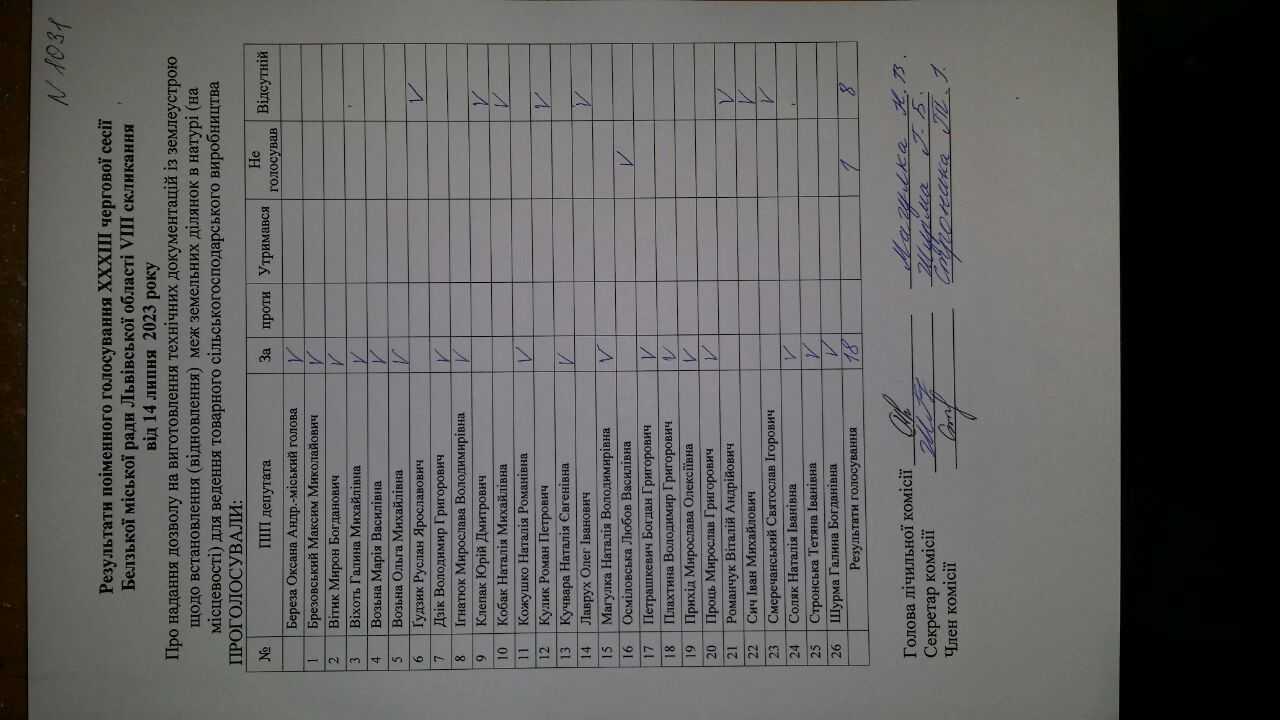 N 1031
Результати поіменного голосування XXXIII чергової сесії
Белзької міської ради Львівської області VIII скликання
від 14 липня 2023 року
Про надання дозволу на виготовлення технічних документацій із землеустрою
щодо встановлення (відновлення) меж земельних ділянок в натурі (на
місцевості) для ведення товарного сільськогосподарського виробництва
ПРОГОЛОСУВАЛИ:
№ ПІП депутата За проти Утримався Не голосував Відсутній
Береза Оксана Андр.-міський голова V
1 Брезовський Максим Миколайович V
2 Вітик Мирон Богданович V
3 Віхоть Галина Михайлівна V
4 Возьна Марія Василівна V
5 Возьна Ольга Михайлівна V
6 Гудзик Руслан Ярославович V
7 Дзік Володимир Григорович V
8 Ігнатюк Мирослава Володимирівна V
9 Клепан Юрій Дмитрович V
10 Кобак Наталія Михайлівна V
11 Кожушко Наталія Романівна V
12 Кулик Роман Петрович V
13 Кучвара Наталія Євгенівна V
14 Лаврух Олег Іванович V
15 Магулка Наталія Володимирівна V
16 Осміловська Любов Василівна V
17 Петрашкевич Богдан Григорович V
18 Плахтина Володимир Григорович V
19 Прихід Мирослава Олексіївна V
20 Проць Мирослав Григорович V
21 Романчук Віталій Андрійович V
22 Сич Іван Михайлович V
23 Смеречанський Святослав Ігорович V
24 Соляк Наталія Іванівна V
25 Стронська Тетяна Іванівна V
26 Шурма Галина Богданівна V
Результати голосування 18 1 8
Голова лічильної комісії Магулка Н. В.
Секретар комісії Шурма Г. Б.
Член комісії Стронська Т. І.